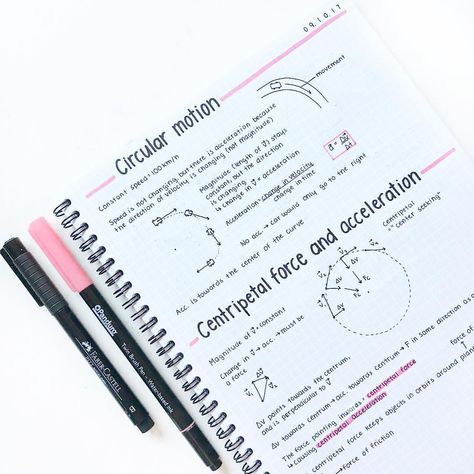 09.10.17
Circular motion
movement
Constant speed: 100km/h
Speed is not changing, but there is acceleration because
the direction of velocity is changing (not magnitude)
Magnitude (length of v⃗) stays
constant, but the direction
is changing
↳ change in v⃗ = acceleration
Acceleration = change in velocity
change in time
a⃗ = Δv⃗
Δt
No acc → car would only go to the right
Acc. is towards the center of the curve
Centripetal force and acceleration
centripetal
"center seeking"
Magnitude of v⃗ = constant
Change in v⃗ → acc → must be
a force
Δv points towards the centrum,
and is perpendicular to v⃗
Δv towards centrum → acc. towards centrum → F in same direction as
The force pointing inwards: centripetal force
causing centripetal acceleration
centripetal force keeps objects in orbits around
force of
force of friction
@Pandurz
Twin Brush Pen - Water-based ink
FABER-CASTELL
B